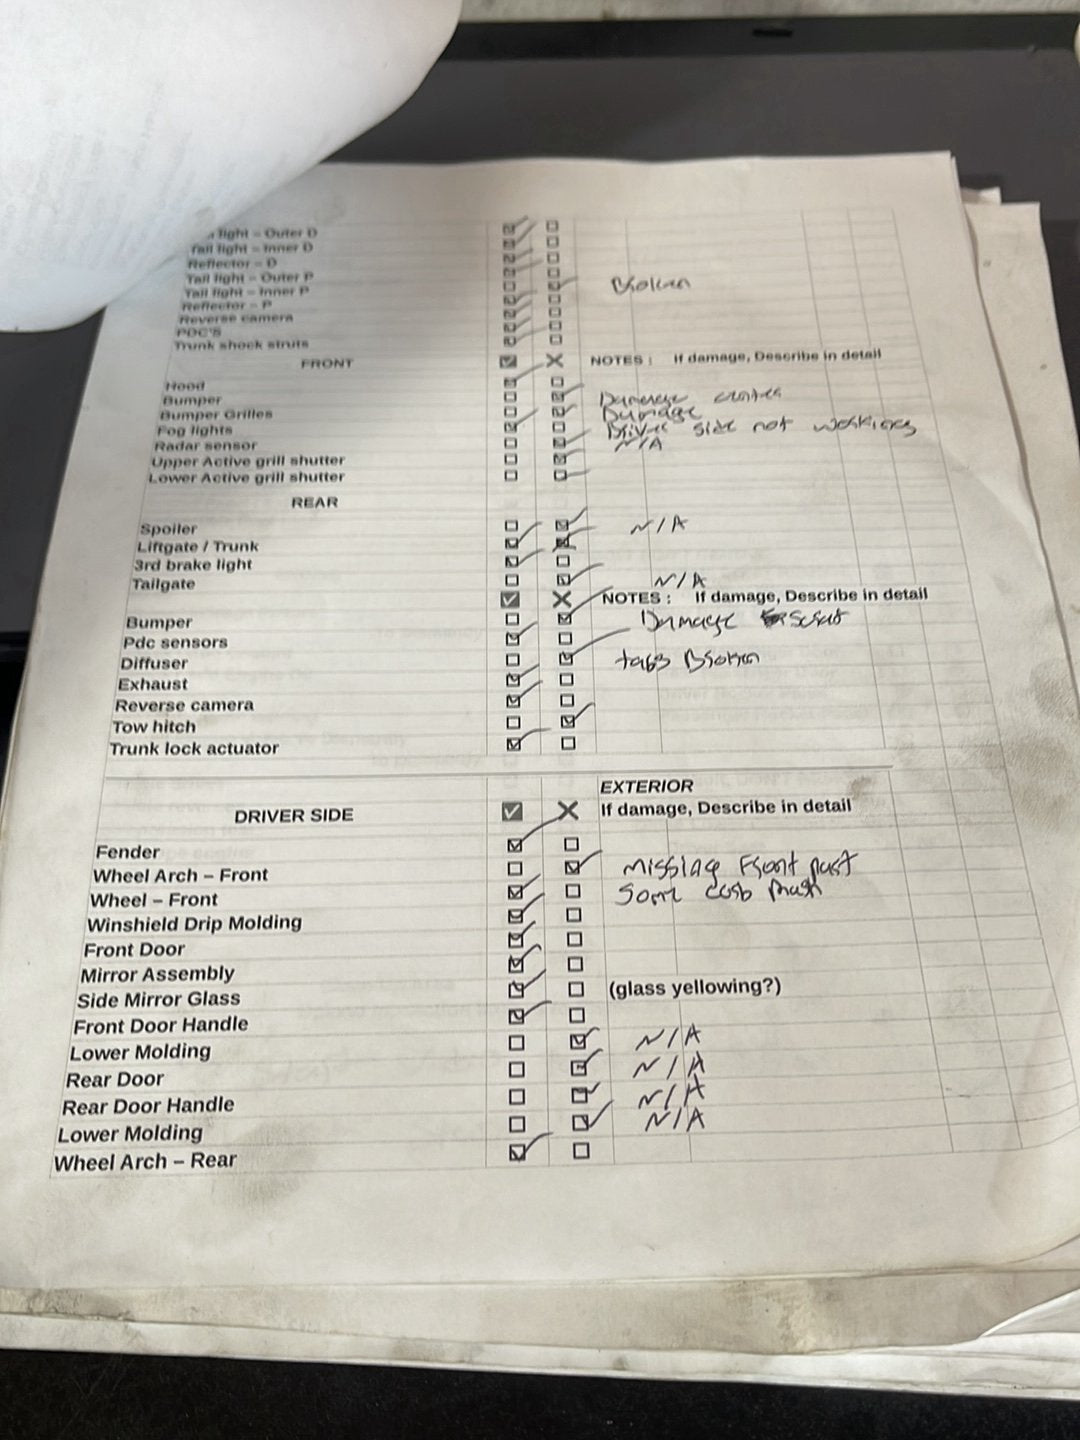 light – Outer D
Tail light – Inner D
Reflector – D
Tail light – Outer P
Tail light – Inner P Broken
Reflector – P
Reverse camera
PDC'S
Trunk shock struts
FRONT NOTES : If damage, Describe in detail
Hood
Bumper Damage
Bumper Grilles Damage
Fog lights Driver side not working
Radar sensor N/A
Upper Active grill shutter
Lower Active grill shutter
REAR
Spoiler N/A
Liftgate / Trunk
3rd brake light
Tailgate N/A
NOTES : If damage, Describe in detail
Bumper Damage
Pdc sensors
Diffuser tabs Broken
Exhaust
Reverse camera
Tow hitch
Trunk lock actuator
EXTERIOR
DRIVER SIDE If damage, Describe in detail
Fender
Wheel Arch – Front missing Front part
Wheel – Front Some curb rash
Winshield Drip Molding
Front Door
Mirror Assembly
Side Mirror Glass (glass yellowing?)
Front Door Handle
Lower Molding N/A
Rear Door N/A
Rear Door Handle N/A
Lower Molding N/A
Wheel Arch – Rear